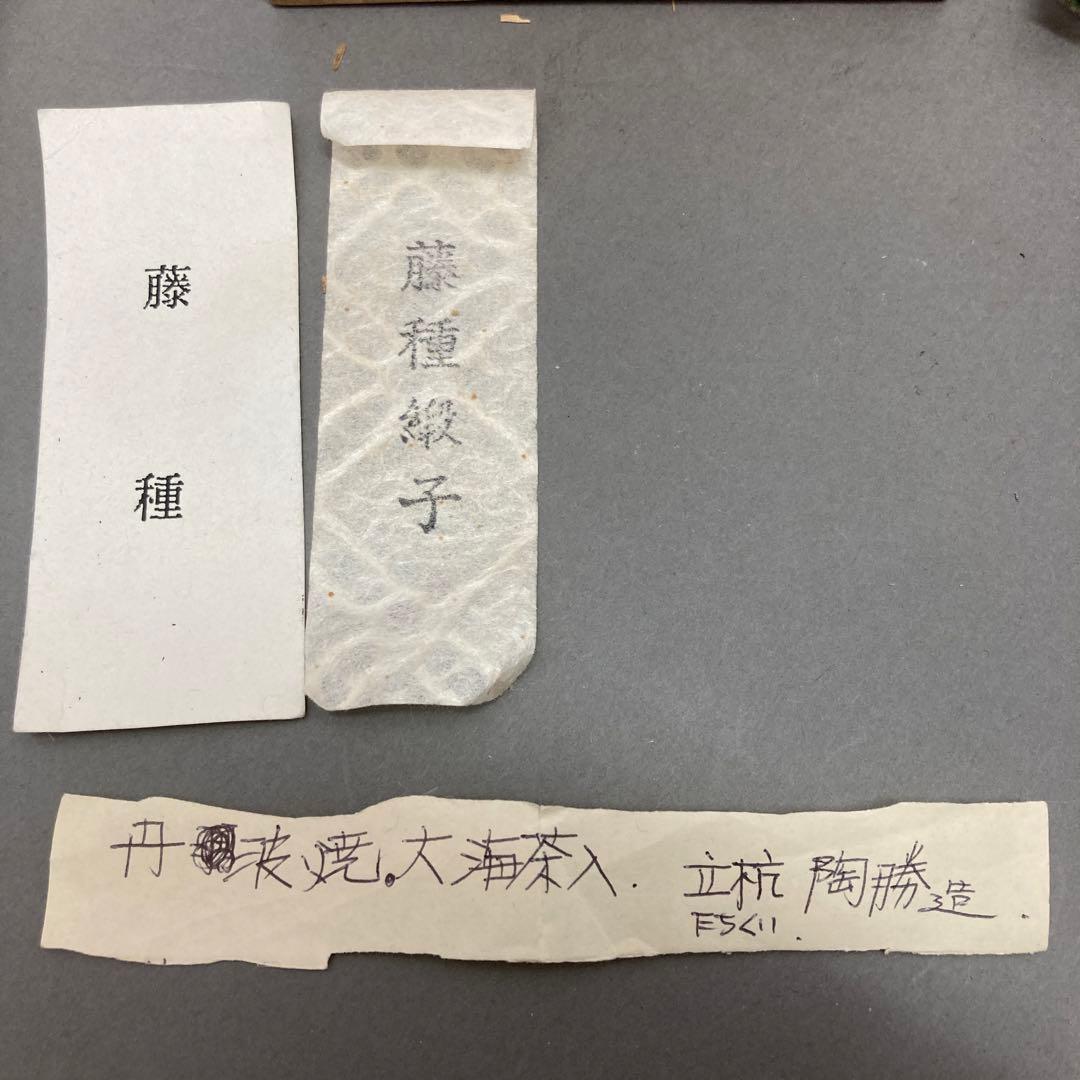 藤種
藤種緞子
丹波焼。大海茶入.
立杭 陶勝造.